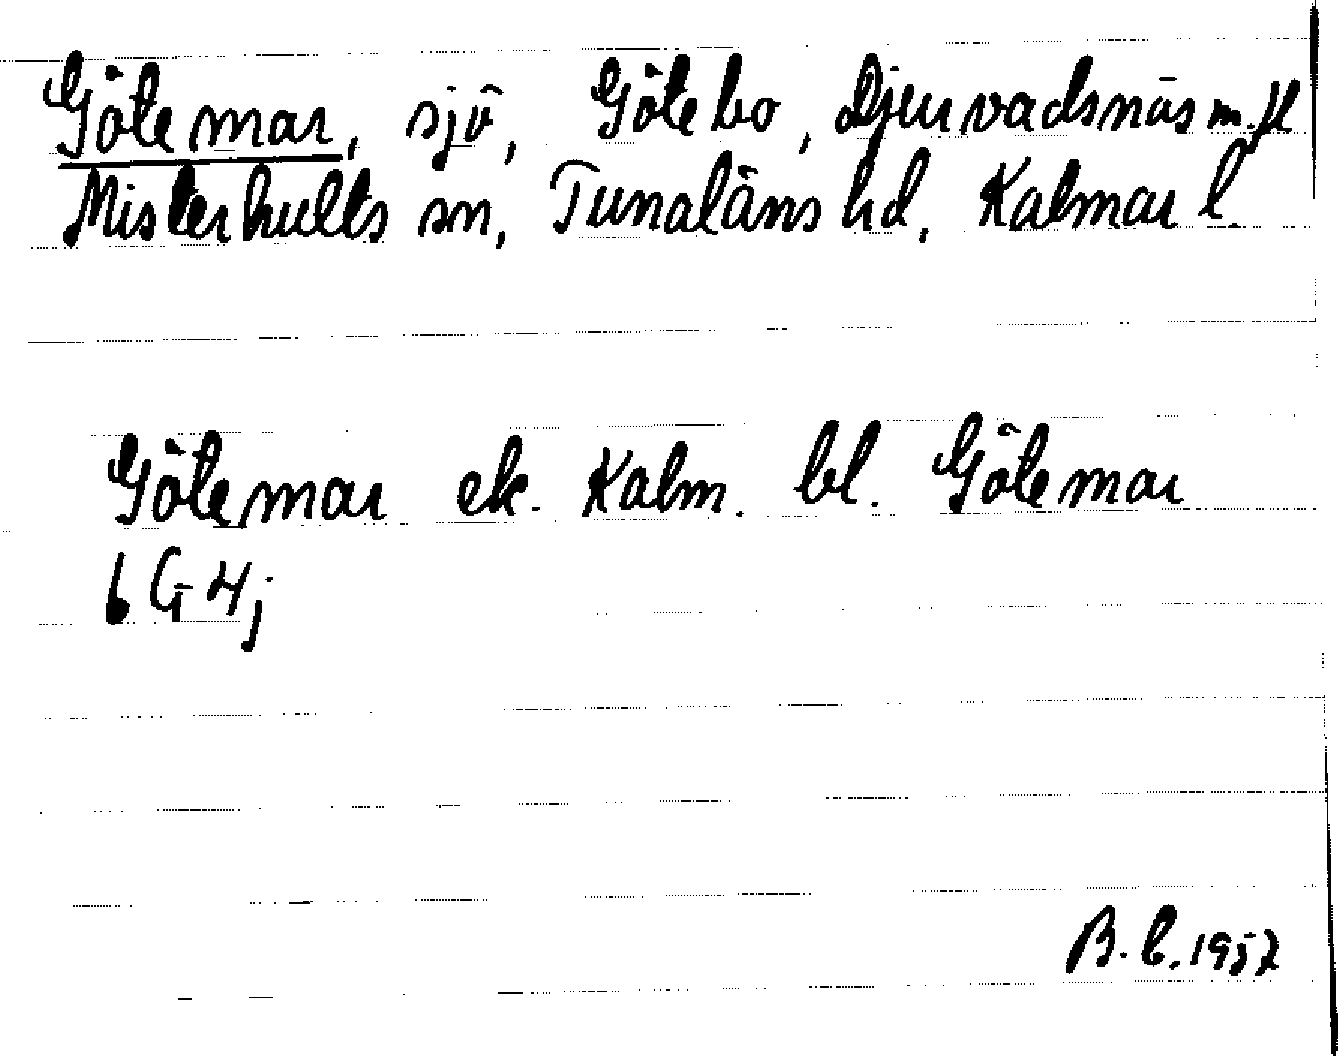 Götemar, sjö, Götebo, Djurvadsnäs m.fl
Misterhults sn, Tunaläns hd, Kalmar l.
Götemar ek. Kalm. bl. Götemar
6 G 4 j
B. C. 1957